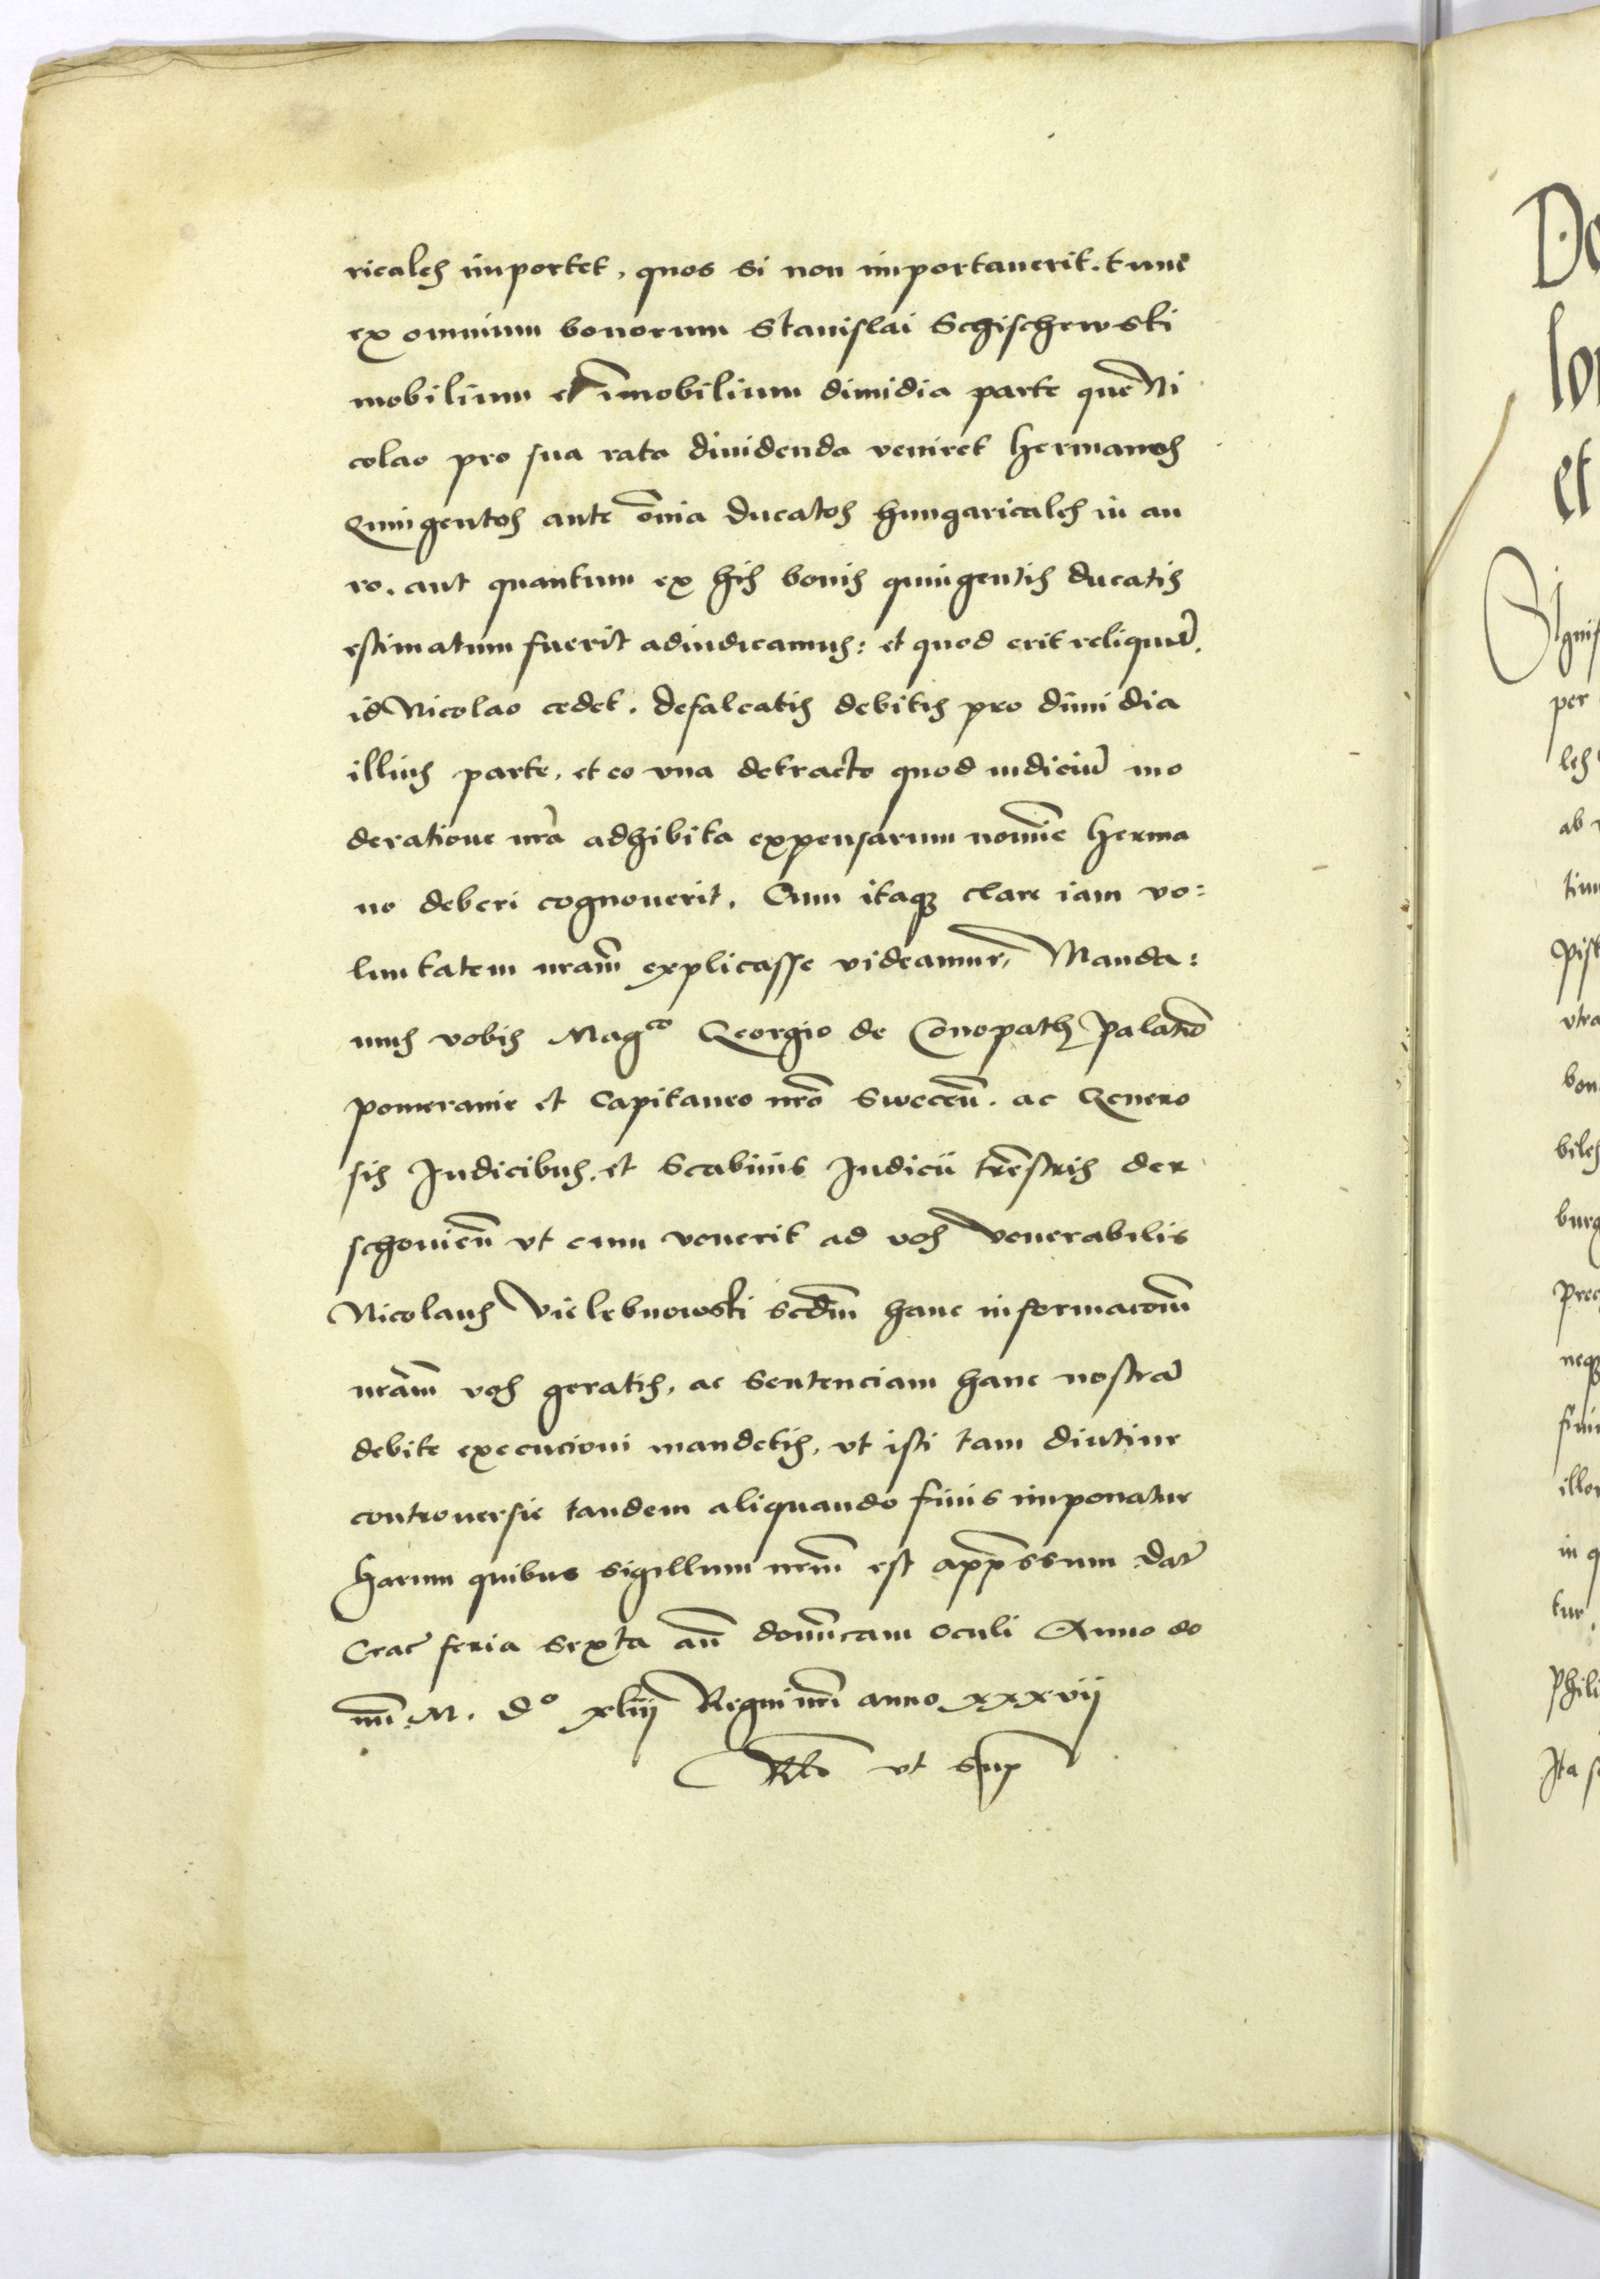 ricales importet, quos si non importauerit. tunc
ex omnium bonorum Stanislai Schischewski
mobilium et imobilium dimidia parte que Ni
colao pro sua rata diuidenda veniret Hermanos
Quingentos ante oĩa ducatos hungaricales in au
ro. aut quantum ex his bonis quingentis ducatis
estimatum fuerit adiudicamus: et quod erit reliquũ.
id Nicolao cedet. defalcatis debitis pro dimidia
illius parte. et eo vna detracto quod iudiciũ mo
deratione nr̃a adhibita expensarum noĩe Herma
no deberi cognouerit. Cum itaq3 clare iam vo:
luntatem nram̃ explicasse videamur, Manda:
mus vobis Magco Georgio de Conopath Palatĩo
pomeranie et Capitaneo nr̃o Sweceñ. ac Genero
sis Judicibus. et Scabinis Judicii tr̃estris der
schouieñ vt cum venerit ad vos Venerabilis
Nicolaus Vielebnowski scdm̃ hanc informacõem
nram̃ vos geratis, ac sentenciam hanc nostrã
debite execucioni mandetis, vt isti tam diutine
controuersie tandem aliquando finis imponatur
Harum quibus sigillum nrm̃ est app̃ssum dat̃
Crac̃ feria sexta añ domĩcam oculi Anno do
mĩ. M. do xliij Regni nr̃i anno xxxvij
Rlo vt sup